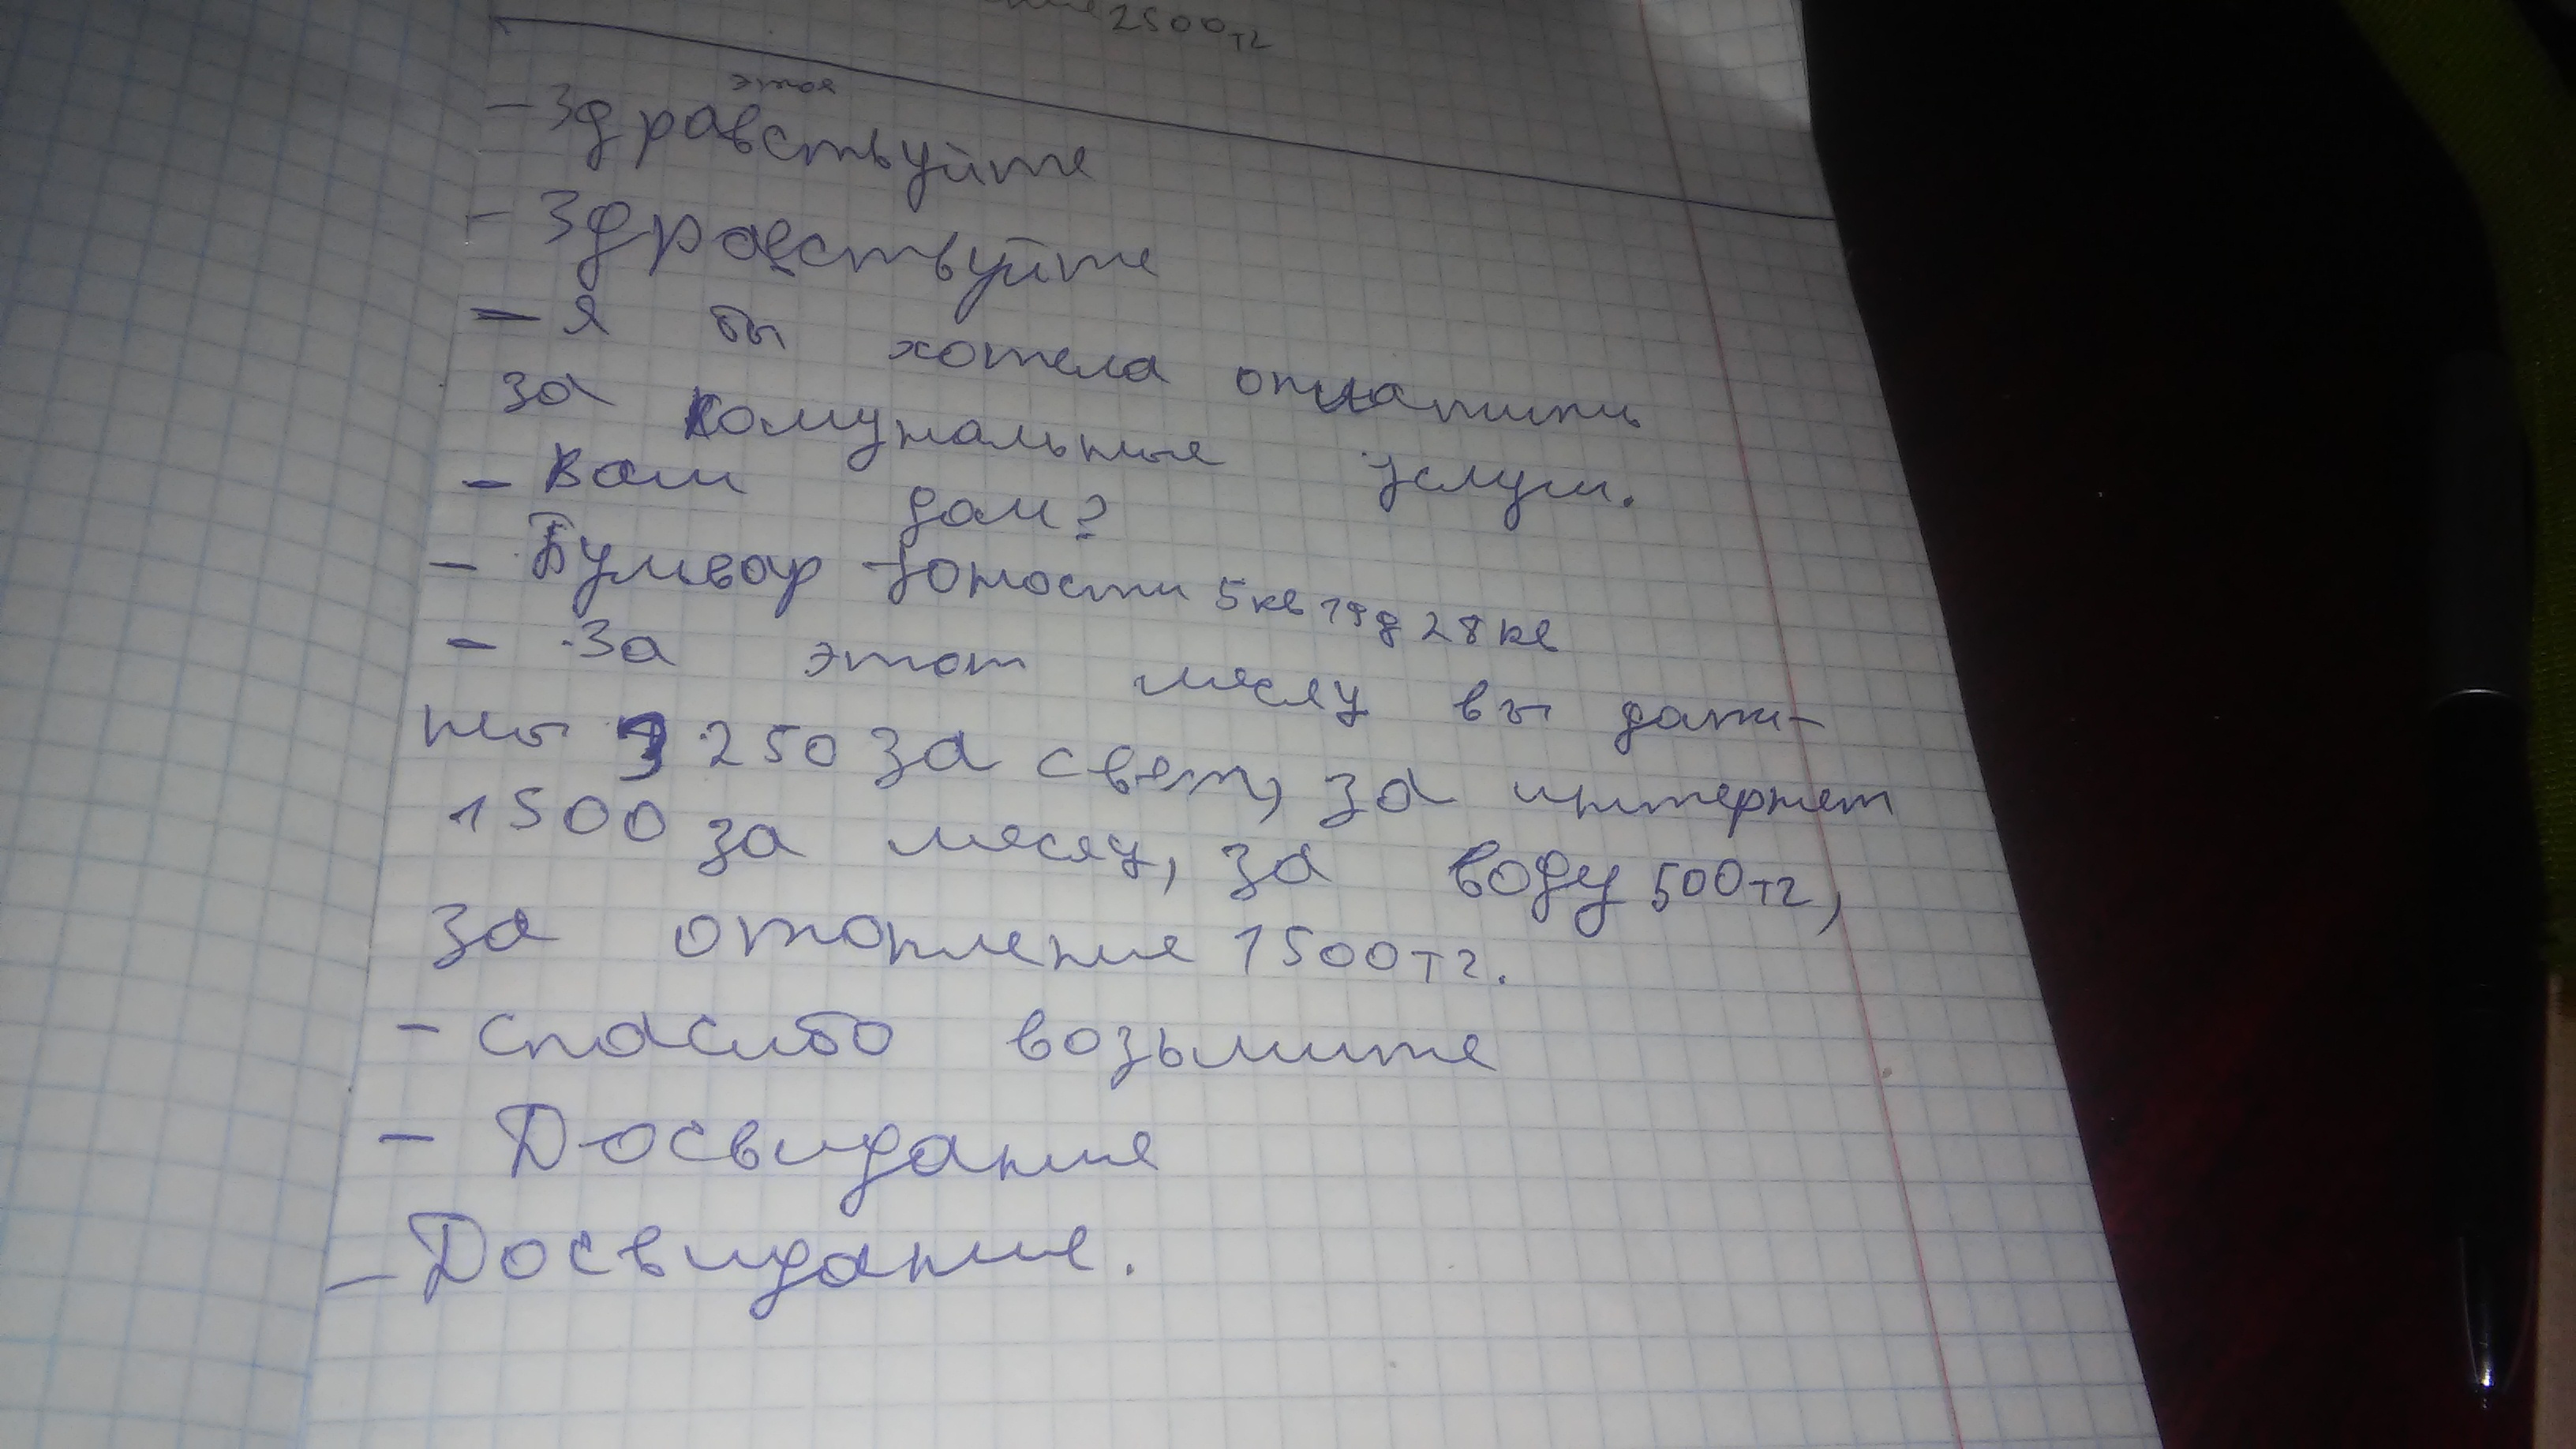 2500тг
этоя
- Здравствуйте
- Здравствуйте
- я бы хотела оплатить
за комунальные услуги.
- Ваш дом?
- Бульвар Юности 5кв 19д 28кв
- За этот месяц вы далж-
ны 3 250 за свет, за интернет
1500 за месяц, за воду 500тг,
за отопление 1500тг.
- спасибо возьмите
- Досвидание
- Досвидание.